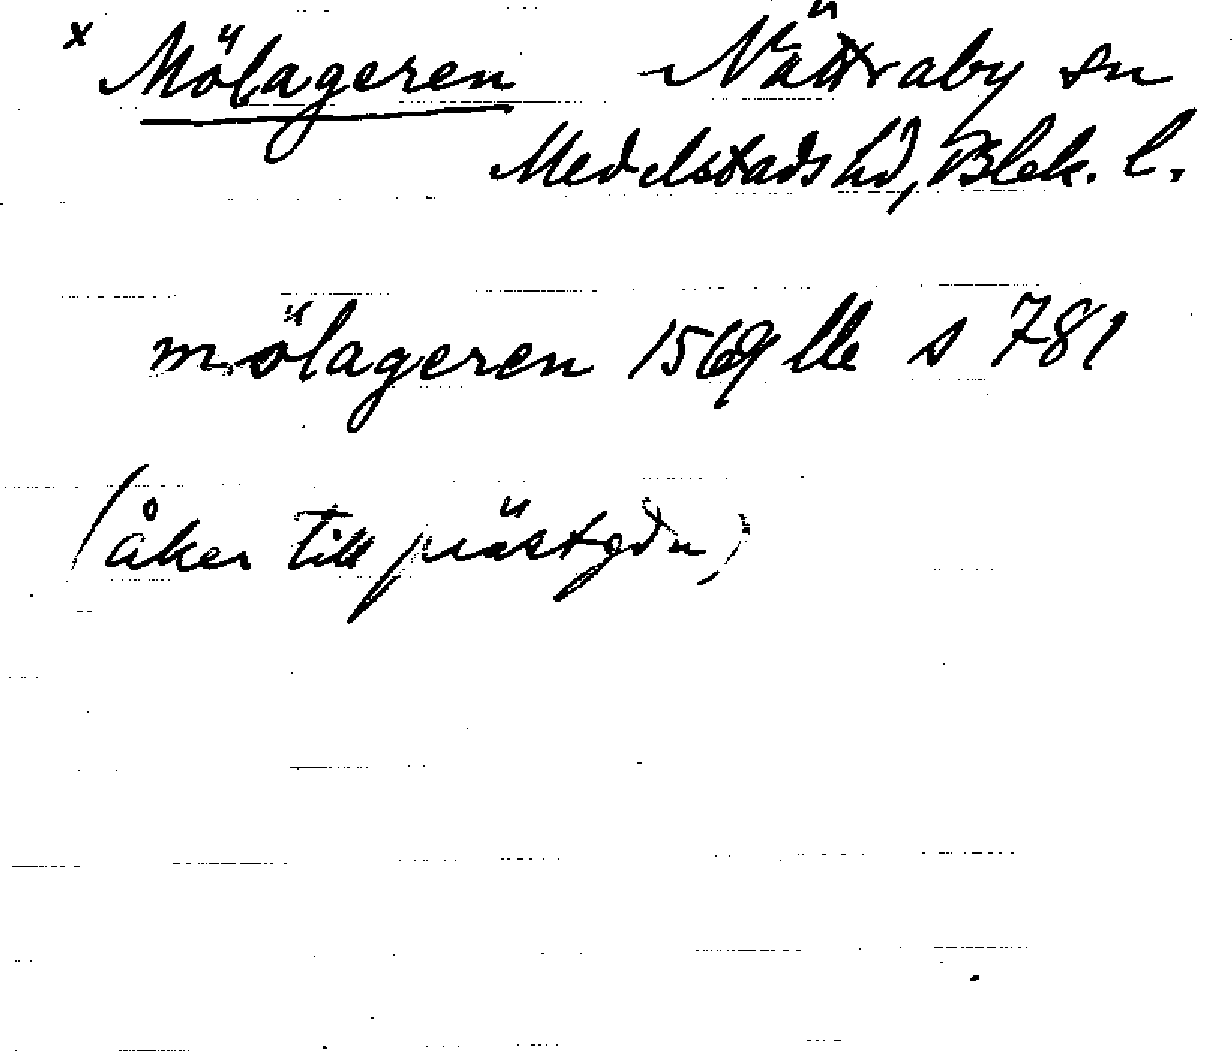 x Mölageren Nättraby sn
Medelstads hd, Blek. l.
mölageren 1569 lle s 781
(åker till prästgdn)